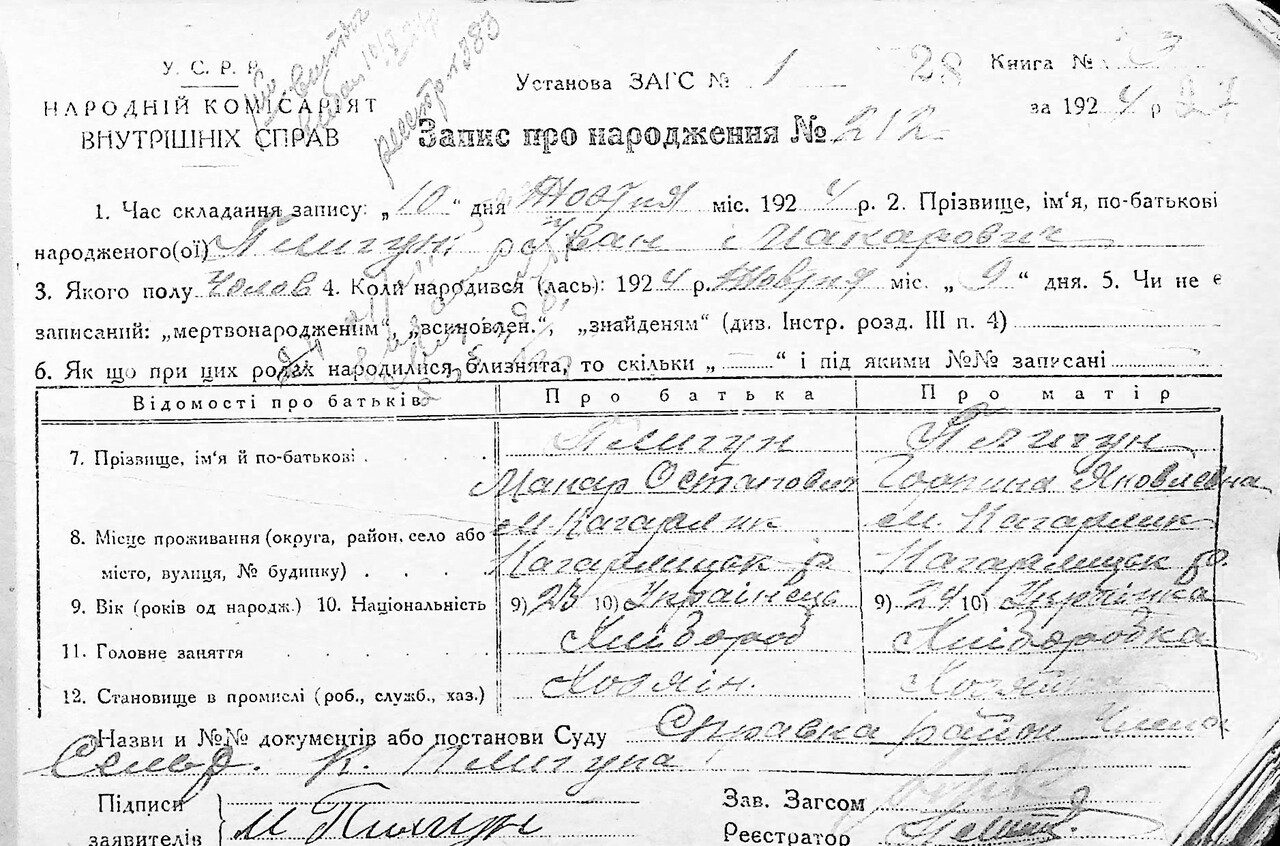 У. С. Р. Р.
НАРОДНІЙ КОМІСАРІЯТ
ВНУТРІШНІХ СПРАВ
реестр № 383
Установа ЗАГС № 1
28
Книга № 3
за 1924 р 27
Запис про народження № 212
1. Час складання запису: „10“ дня Жовтня міс. 1924 р. 2. Прізвище, ім'я, по-батькові
народженого(ої) Плигун Іван Макарович
3. Якого полу Чолов 4. Коли народився (лась): 1924 р. Жовтня міс. „9“ дня. 5. Чи не є
записаний: „мертвонародженим“, „всиновлен.“, „знайденям“ (див. Інстр. розд. III п. 4)
6. Як що при цих родах народилися близнята, то скільки „ “ і під якими №№ записані
Відомості про батьків Про батька Про матір
7. Прізвище, ім'я й по-батькові Плигун Плигун
Макар Остапович Горпина Яковлевна
8. Місце проживання (округа, район, село або м. Кагарлик м. Кагарлик
місто, вулиця, № будинку) Кагарлицьк р. Кагарлицьк р.
9. Вік (років од народж.) 10. Національність 9) 23 10) Українець 9) 24 10) Українка
11. Головне заняття Хлібороб Хліборобка
12. Становище в промислі (роб., служб., хаз.) Хозяін. Хозяйка
Назви и №№ документів або постанови Суду Справка район Члена
К. Плигуна
Підписи
заявителів М Плигун
Зав. Загсом
Реєстратор